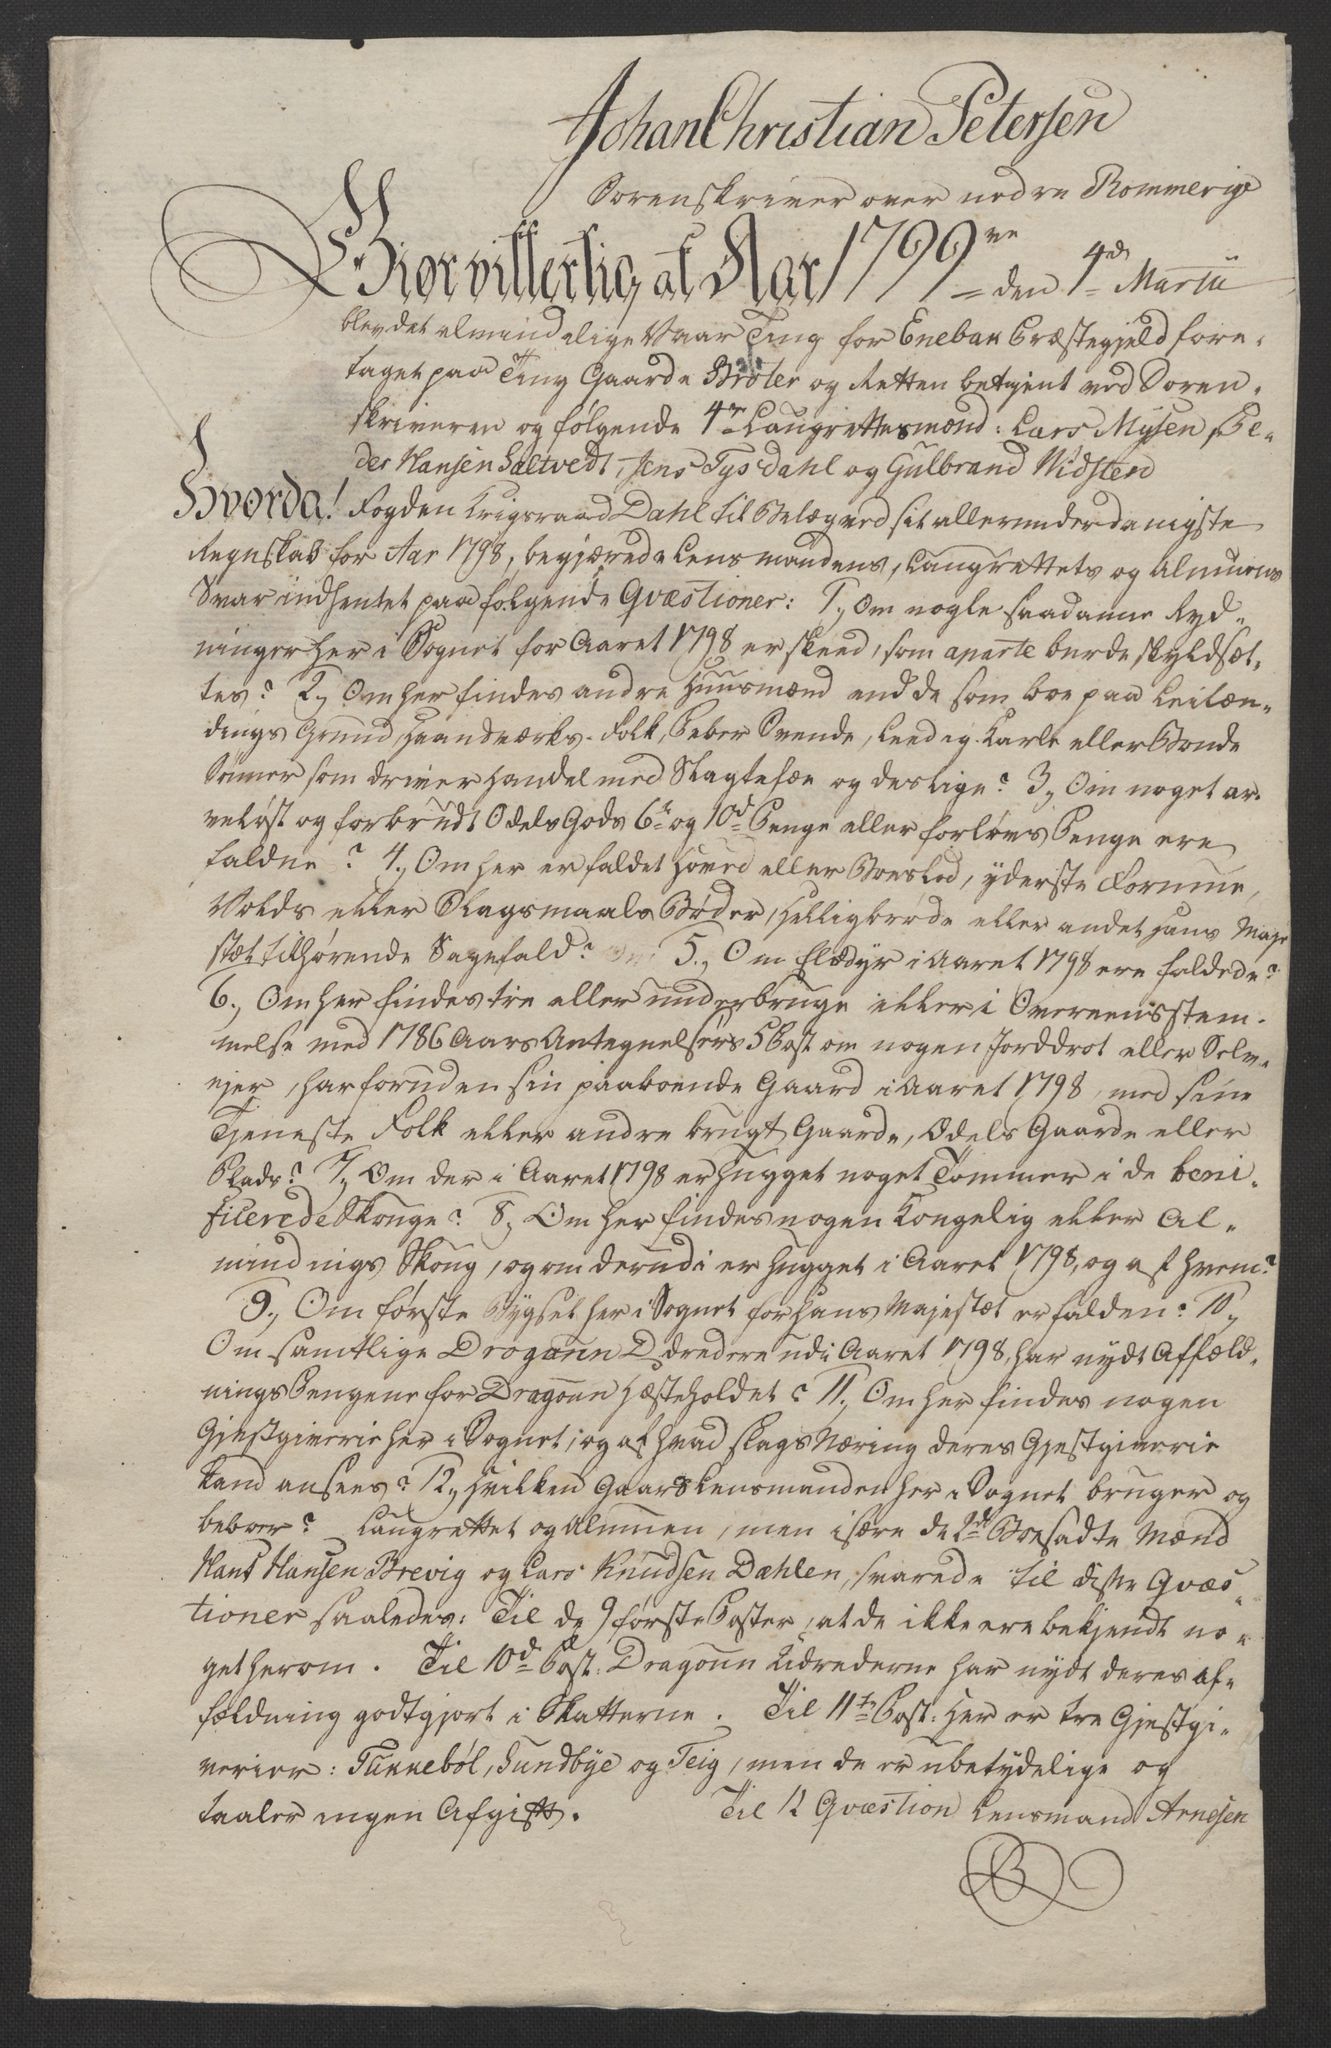 Johan Christian Petersen
Sorenskriver over nedre Rommerige
Giør vitterlig, at Aar 1799ve den 4de Martii
blev det almindelige Vaar Ting for Enebak Præstegjeld fore-
taget paa Ting Gaarde Brøter og Retten betjent ved Soren-
skriveren og følgende 4re Laugrettesmænd: Lars Mysen, Pe-
der Hansen Saltvedt, Jens Tysdahl og Gulbrand Nidsten
Hvorda! Fogden Krigsraad Dahl til Belæg ved sit allerunderdanigste
Regnskab for Aar 1798, begjærede Lensmandens, Laugrettets og Almuens
Svar indhentet paa følgende Qvæstioner: 1., Om nogle saadanne Ryd-
ninger her i Sognet for Aaret 1798 er skeed, som aparte burde skyldsæt-
tes? 2., Om her findes andre Huusmænd end de som boe paa Leilæn-
dings Grund, Haandværks-Folk, Peber Svende, Leedig Karle eller Bonde
Sønner som driver Handel med Slagtefæe og deslige? 3., Om noget ar-
veløst og forbrudt Odels Gods 6te og 10de Penge eller forlovs Penge ere
faldne? 4., Om her er faldet Hoved eller Boeslod, yderste Formue,
Volds eller Slagsmaals Bøder, Helligbrøde eller andet Hans Maje-
stæt tilhørende Sagefald? 5., Om Elsdyr i Aaret 1798 ere faldede?
6., Om her findes tvi eller underbruge eller i Overeensstem-
melse med 1786 Aars Antegnelsers 5 Post om nogen Jorddrot eller Selv-
ejer, har foruden sin paaboende Gaard i Aaret 1798, med sine
Tjeneste Folk eller andre brugt Gaarde, Ødels Gaarde eller
Plads? 7., Om der i Aaret 1798 er hugget noget Tømmer i de beni-
ficerede Skouge? 8., Om her findes nogen Kongelig eller Al-
mindings Skoug, og om derudi er hugget i Aaret 1798, og af hvem?
9., Om første Bygsel her i Sognet for Hans Majestæt er falden? 10.,
Om samtlige Dragoun Udredere udi Aaret 1798, har nydt Affæld-
nings Pengene for Dragoun Hæsteholdet? 11., Om her findes nogen
Gjestgiverie her i Sognet, og af hvad slags Næring deres Gjestgiverie
kand ansees? 12., Hvilken Gaard Lensmanden her i Sognet bruger og
beboer? Laugrettet og Almuen, men især de 2de Boesadte Mænd
Hans Hansen Brevig og Lars Knudsen Dahlen, svarede til disse Qvæs-
tioner saaledes: Til de 9 første Poster, at de ikke ere bekjendt no-
get herom. Til 10de Post: Dragoun Udrederne har nydt deres af-
fældning godtgjort i Skatterne. Til 11te Post: Her er tre Gjestgi-
verier: Tunnebøl, Sundbye og Teig, men de er ubetydelige og
taaler ingen Afgift. Til 12 Qvæstion Lensmand Arnesen